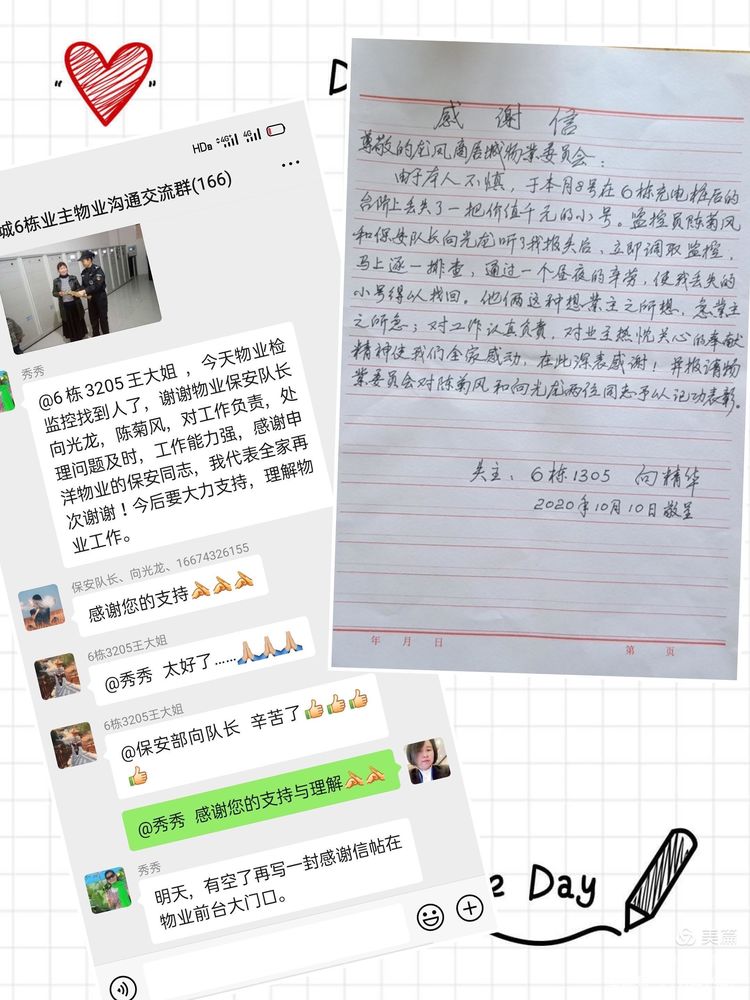 HD 4G 4G
城6栋业主物业沟通交流群(166)
秀秀
@6栋3205王大姐，今天物业检
监控找到人了，谢谢物业保安队长
向光龙，陈菊风，对工作负责，处
理问题及时，工作能力强，感谢申
洋物业的保安同志，我代表全家再
次谢谢！今后要大力支持，理解物
业工作。
保安队长、向光龙、16674326155
感谢您的支持
6栋3205王大姐
@秀秀 太好了……
6栋3205王大姐
@保安部向队长 辛苦了
@秀秀 感谢您的支持与理解
秀秀
明天，有空了再写一封感谢信帖在
物业前台大门口。
感谢信
尊敬的龙凤商居城物业委员会：
由于本人不慎，于本月8号在6栋充电桩后的
台阶上丢失了一把价值千元的小号。监控员陈菊风
和保安队长向光龙听了我报失后，立即调取监控，
马上逐一排查，通过一个昼夜的辛劳，使我丢失的
小号得以找回。他俩这种想业主之所想，急业主
之所急；对工作认真负责，对业主热忱关心的奉献
精神使我们全家感动，在此深表感谢！并报请物
业委员会对陈菊风和向光龙两位同志予以记功表彰。
失主：6栋1305 向精华
2020年10月10日敬呈
年 月 日 第 页
Day
美篇